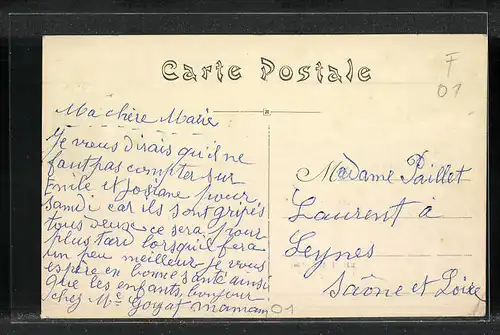 Carte Postale
F
01
Ma chère Marie
Je vous dirais qu'il ne
faut pas compter sur
Emile et Josiane pour
samdi car ils sont gripés
tous deux ce sera pour
plus tard lorsqu'il fera
un peu meilleur je vous
espère en bonne santé ainsi
que les enfants, bonjour
chez Me Goyat maman
01
Madame Paillet
Laurent à
Leynes
Saône et Loire